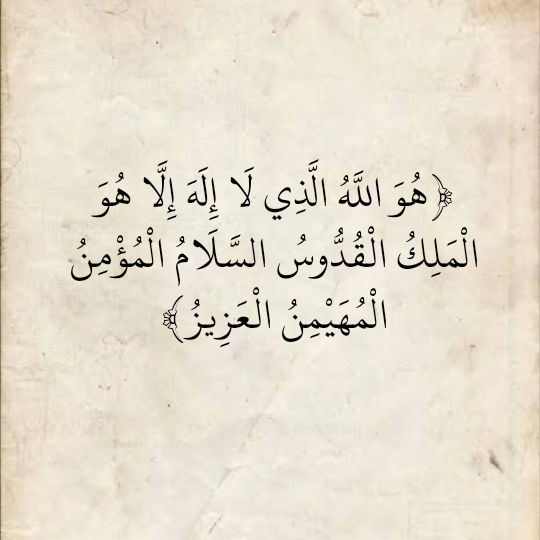 ﴿هُوَ اللَّهُ الَّذِي لَا إِلَهَ إِلَّا هُوَ
الْمَلِكُ الْقُدُّوسُ السَّلَامُ الْمُؤْمِنُ
الْمُهَيْمِنُ الْعَزِيزُ﴾